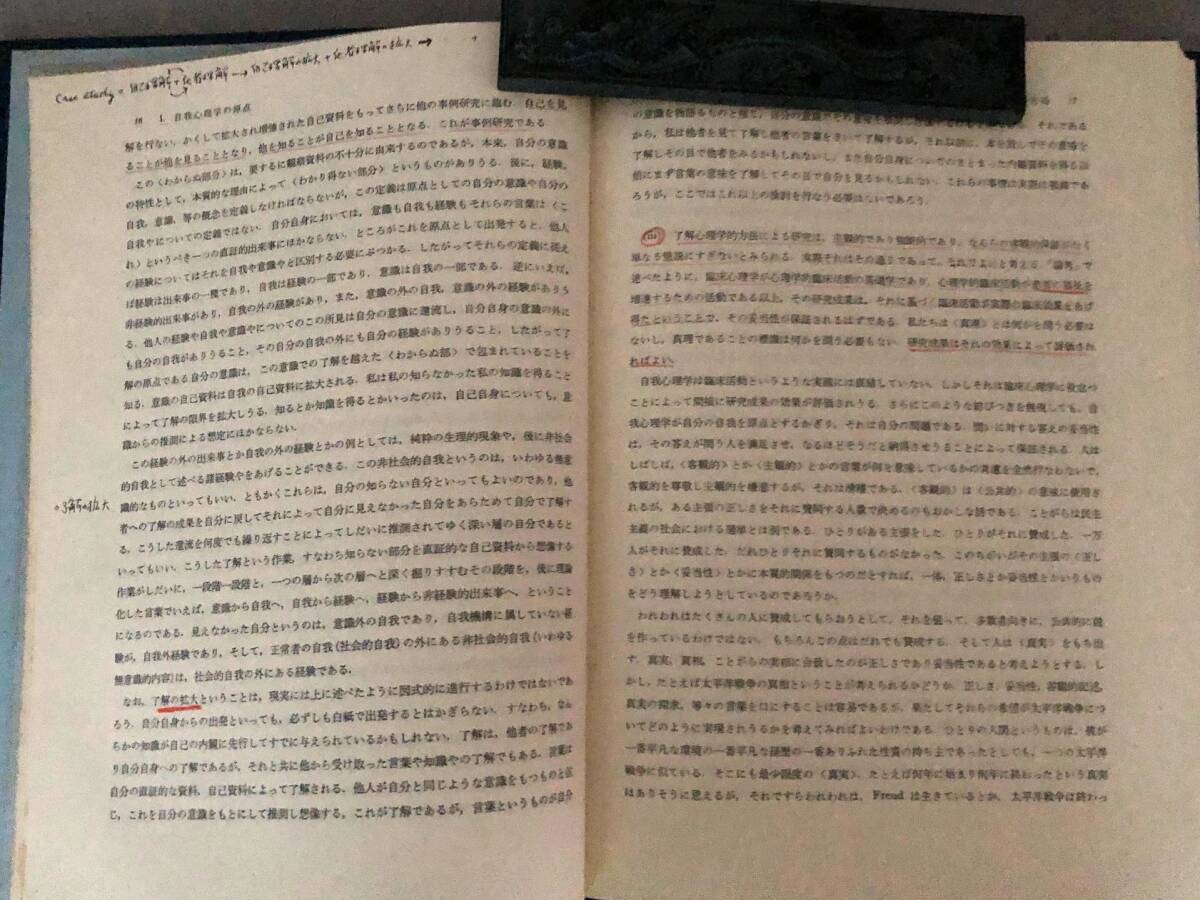 Case study = 自己理解 + 他者理解 → 自己理解の拡大 + 他者理解の拡大 →
1. 自我心理学の原点
解を行ない、かくして拡大され増強された自己資料をもってさらに他の事例研究に臨む。自己を見
ることが他を見ることとなり、他を知ることが自己を知ることとなる。これが事例研究である
この〈わからぬ部分〉は、要するに観察資料の不十分に由来するのであるが、本来、自分の意識
の特性として、本質的な理由によって〈わかり得ない部分〉というものがありうる。後に、経験、
自我、意識、等の概念を定義しなければならないが、この定義は原点としての自分の意識や自分の
自我やについての定義ではない。自分自身においては、意識も自我も経験もそれらの言葉は〈こ
れ〉というべき一つの直証的出来事にほかならない。ところがこれを原点として出発すると、他人
の経験についてはそれを自我や意識やと区別する必要にぶつかる。したがってそれらの定義に従え
ば経験は出来事の一種であり、自我は経験の一部であり、意識は自我の一部である。逆にいえば、
非経験的出来事があり、自我の外の経験があり、また、意識の外の自我、意識の外の経験がありう
る。他人の経験や自我や意識やについてのこの所見は自分の意識に還流し、自分自身の意識の外に
も自分の自我がありうること、その自分の自我の外にも自分の経験がありうること、したがって了
解の原点である自分の意識は、この意識での了解を越えた〈わからぬ部〉で包まれていることを
知る。意識の自己資料は自我の自己資料に拡大される。私は私の知らなかった私の知識を得ること
によって了解の限界を拡大しうる。知るとか知識を得るとかいったのは、自己自身についても、意
識からの推測による想定にほかならない。
この経験の外の出来事とか自我の外の経験とかの例としては、純粋の生理的現象や、後に非社会
的自我として述べる諸経験やをあげることができる。この非社会的自我というのは、いわゆる無意
識的なものといってもいい。ともかくこれらは、自分の知らない自分といってもよいのであり、他
者への了解の成果を自分に戻してそれによって自分に見えなかった自分をあらためて自分で了解す
る。こうした還流を何度でも繰り返すことによってしだいに推測されてゆく深い層の自分であると
いってもいい。こうした了解という作業、すなわち知らない部分を直証的な自己資料から想像する
作業がしだいに、一段階一段階と、一つの層から次の層へと深く掘りすすむその段階を、後に理論
化した言葉でいえば、意識から自我へ、自我から経験へ、経験から非経験的出来事へ、ということ
になるのである。見えなかった自分というのは、意識外の自我であり、自我機構に属していない経
験が、自我外経験であり、そして、正常者の自我(社会的自我)の外にある非社会的自我(いわゆる
無意識的内容)は、社会的自我の外にある経験である。
なお、了解の拡大ということは、現実には上に述べたように図式的に進行するわけではないであ
ろう。自分自身からの出発といっても、必ずしも白紙で出発するとはかぎらない。すなわち、なん
らかの知識が自己の内観に先行してすでに与えられているかもしれない。了解は、他者の了解であ
り自分自身への了解であるが、それと共に他から受け取った言葉や知識やの了解でもある。言葉は
自分の直証的な資料、自己資料によって了解される。他人が自分と同じような意識をもつものと信
じ、これを自分の意識をもとにして推測し想像する。これが了解であるが、言葉というものが自分
了解の拡大
17
それである
から、私は他者を見て了解し他者の言葉をきいて了解するが、それ以前に、本を読んでその意味を
了解しその目で他者をみるかもしれないし、また自分自身についてのまとまった内観資料を得る以
前にまず言葉の意味を了解してその目で自分を見るかもしれない。これらの事情は実際は複雑であ
ろうが、ここではこれ以上の検討を行なう必要はないであろう。
了解心理学的方法による研究は、主観的であり独断的であり、なんらの客観的保証がなく
単なる臆説にすぎないとみられる。実際それはその通りであって、それでよいと考える。「論考」で
述べたように、臨床心理学が心理学的臨床活動の基礎学であり、心理学的臨床活動が患者に福祉を
増進するための活動である以上、その研究成果は、それに基づく臨床活動が実際の臨床効果をあげ
得たということで、その妥当性が保証されるはずである。私たちは〈真理〉とは何かを問う必要は
ないし、真理であることの標識は何かを問う必要もない。研究成果はその効果によって評価され
ればよい。
自我心理学は臨床活動というような実践には直結していない。しかしそれは臨床心理学に役立つ
ことによって間接に研究成果の効果が評価されうる。さらにこのような結びつきを無視しても、自
我心理学が自分の自我を原点とするかぎり、それは自分の問題である。問いに対する答えの妥当性
は、その答えが問う人を満足させ、なるほどそうだと納得させうることによって保証される。人は
しばしば、〈客観的〉とか〈主観的〉とかの言葉が何を意味しているかの考慮を全然行なわないで、
客観的を尊敬し主観的を嫌悪するが、それは滑稽である。〈客観的〉は〈公共的〉の意味に使用さ
れるが、ある主張の正しさをそれに賛同する人数で決めるのもおかしな話である。ことがらは民主
主義の社会における選挙とは別である。ひとりがある主張をした。ひとりがそれに賛成した。一万
人がそれに賛成した。だれひとりそれに賛同するものがなかった。このちがいがその主張の〈正し
さ〉とかく妥当性〉とかに本質的関係をもつのだとすれば、一体、正しさとか妥当性とかいうもの
をどう理解しようとしているのであろうか。
われわれはたくさんの人に賛成してもらおうとして、それを狙って、多数者向きに、公共的に説
を作っているわけではない。もちろんこの点はだれでも賛成する。そして人は〈真実〉をもち出
す。真実、真相、ことがらの実相に合致したのが正しさであり妥当性であると考えようとする。し
かし、たとえば太平洋戦争の真相ということが考えられるかどうか。正しさ、妥当性、客観的記述、
真実の探求、等々の言葉を口にすることは容易であるが、果たしてそれらの希望が太平洋戦争につ
いてどのように実現されうるかを考えてみればよいわけである。ひとりの人間というものは、彼が
一番平凡な環境の一番平凡な経歴の一番ありふれた性質の持ち主であったとしても、一つの太平洋
戦争に似ている。そこにも最少限度の〈真実〉、たとえば何年に始まり何年に終わったという真実
はありそうに思えるが、それですらわれわれは、Freud は生きているとか、太平洋戦争は終わっ